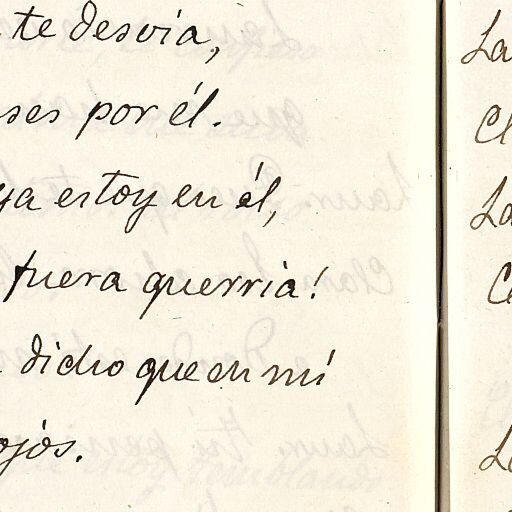 te desvia,
ses por él.
ya estoy en él,
fuera querria!
dicho que en mi
ojos.
La
Cl
La
C
L